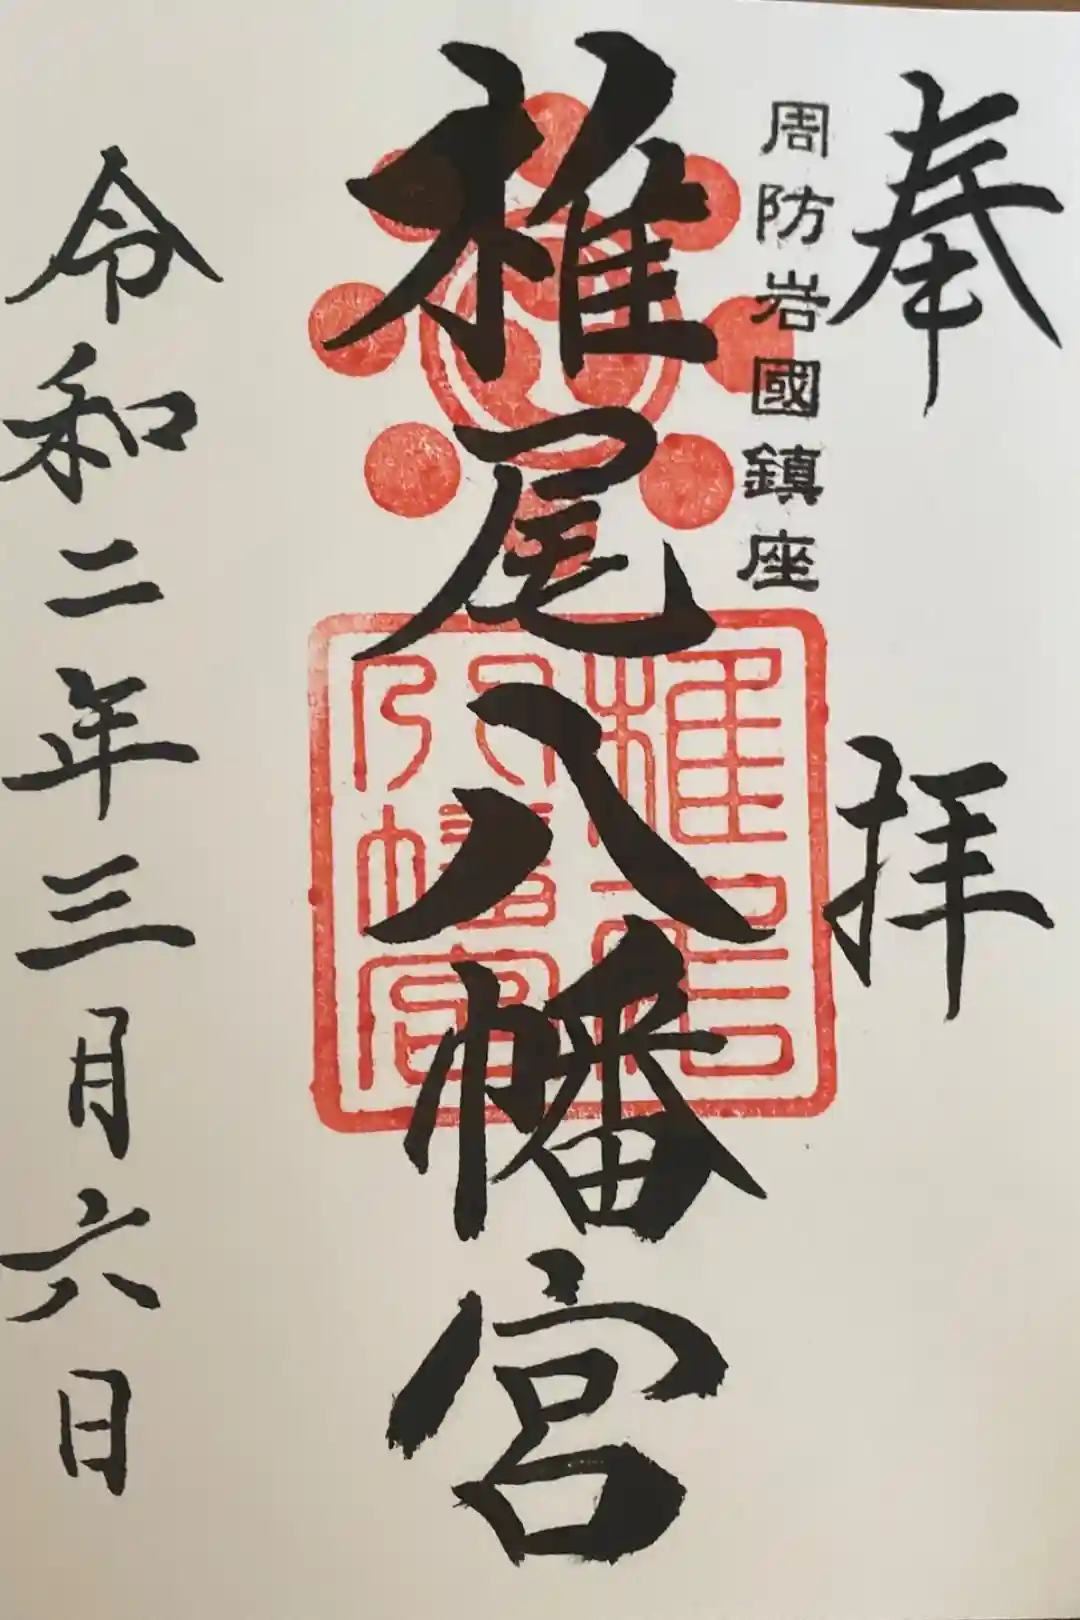 奉拝
周防岩國鎮座
椎尾八幡宮
椎尾八幡宮
令和二年三月六日